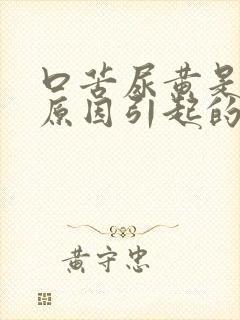 口苦尿黄是
原因引起的
黄守忠